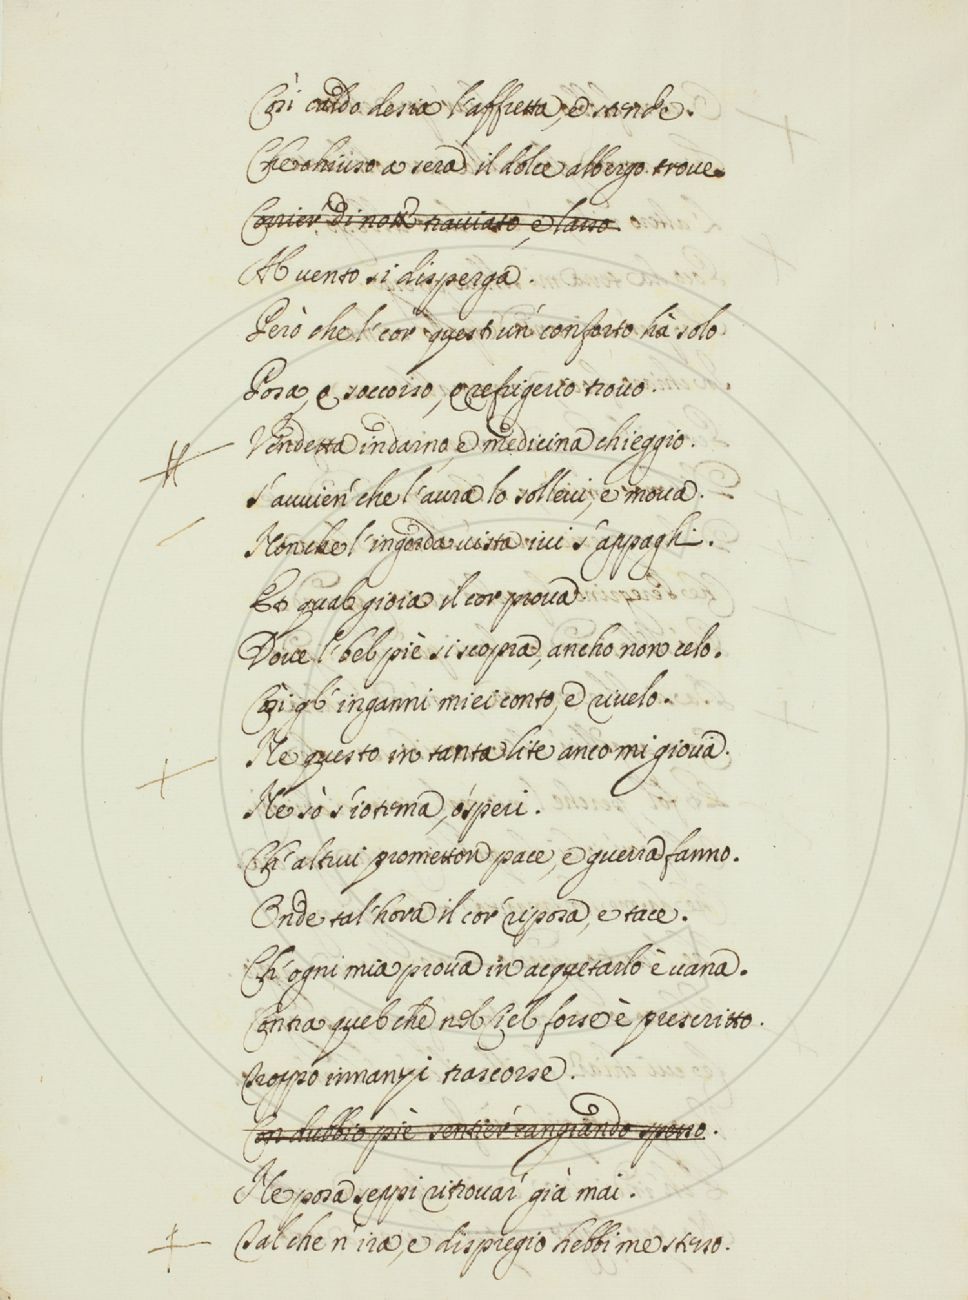 Così caldo desia l'affretta, e stende.
Che chiuso a sera il dolce albergo trove.
Corrier di notte traviato, e lasso
Al vento si disperga.
Però che 'l cor quest'un conforto hà solo.
Posa, e soccorso, e refrigerio trovo.
Vendetta indarno, e medicina chieggio.
S'avvien che l'aura lo sollevi, e mova.
Non che l'ingorda vista ivi s'appaghi.
Et qual gioia il cor prova
Dove 'l bel piè si scopra, ancho non celo.
Così gl'inganni miei conto, e rivelo.
Ne questo in tanta lite anco mi giova.
Ne sò s'io tema, ò speri.
Ch'altrui prometton pace, e guerra fanno.
Onde tal'hora il cor riposa, e tace.
Ch'ogni mia prova in acquetarlo è vana.
Contra quel che nel Ciel forse è prescritto.
Troppo innanzi trascorse.
Con dubbio piè sentier cangiando spesso.
Ne posa seppi ritrovar già mai.
Tal che n'ira, e dispregio hebbi me stesso.